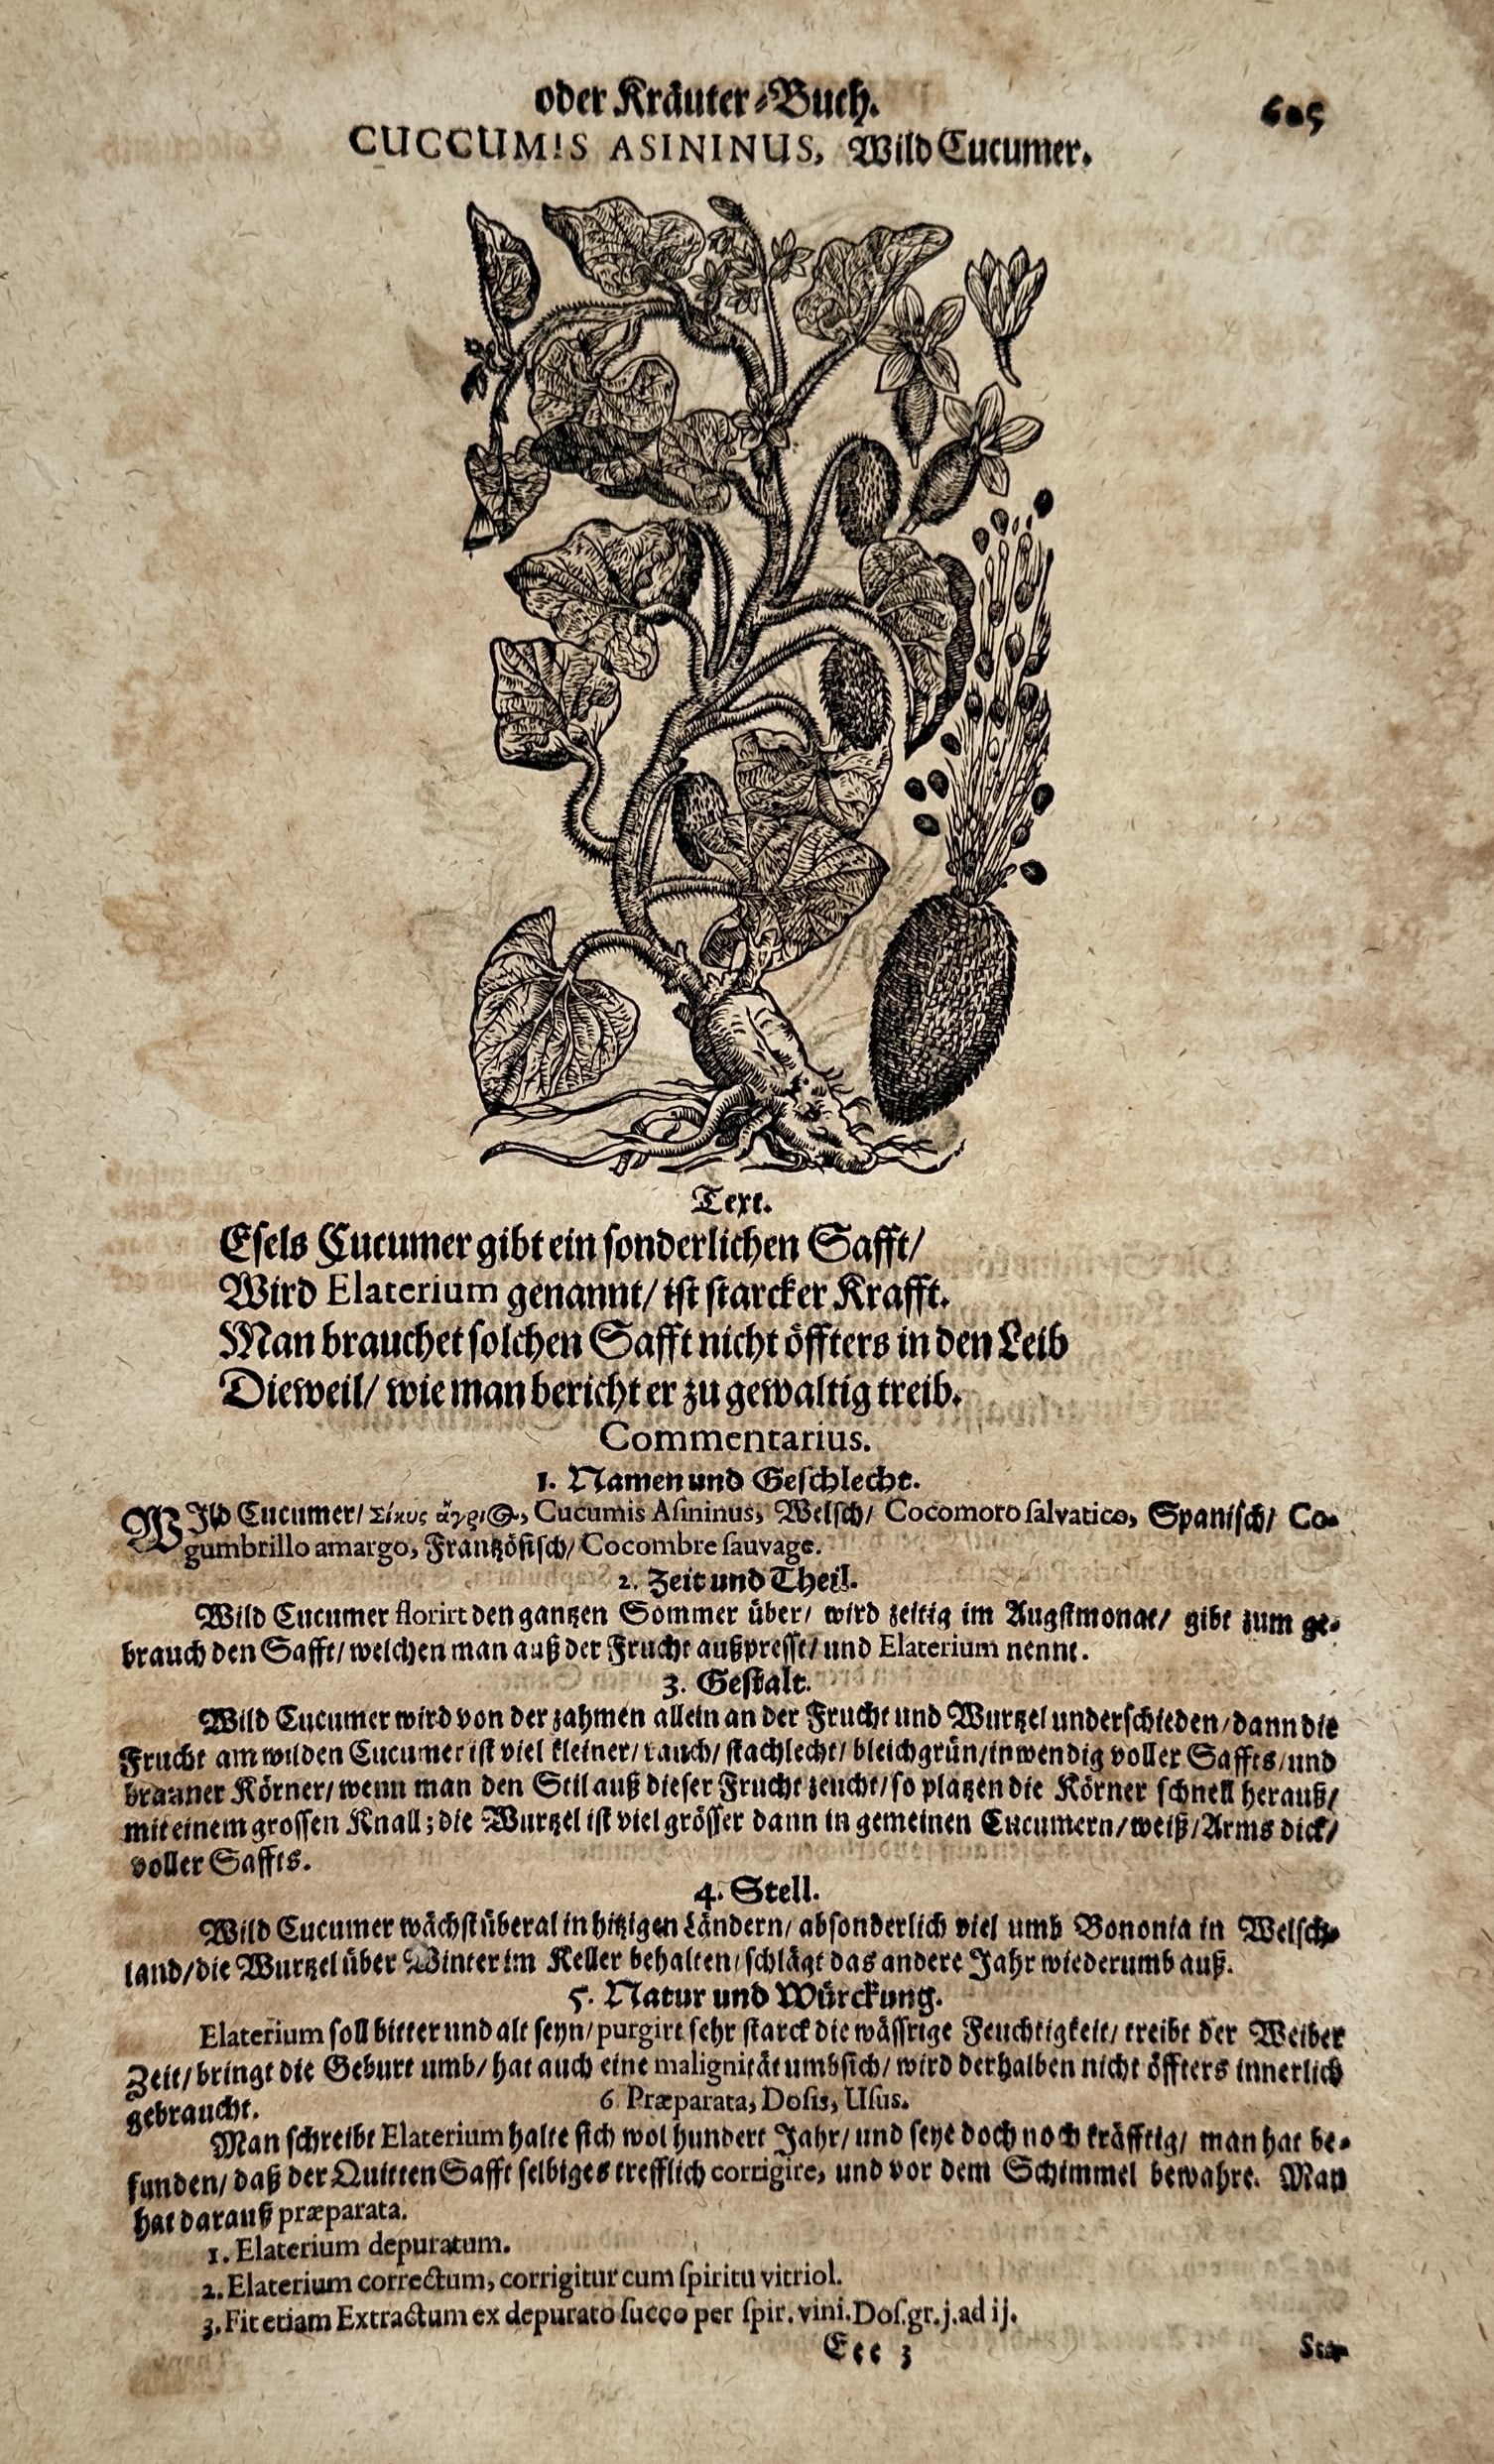 oder Kräuter-Buch. 605
CUCCUMIS ASININUS, Wild Cucumer.
Text.
Eſels Cucumer gibt ein ſonderlichen Safft/
Wird Elaterium genannt/ iſt ſtarcker Krafft.
Man brauchet ſolchen Safft nicht öffters in den Leib
Dieweil/ wie man bericht er zu gewaltig treib.
Commentarius.
1. Namen und Geſchlecht.
WIld Cucumer/ Σίκυς ἄγριος, Cucumis Aſininus, Welſch/ Cocomoro ſalvatico, Spaniſch/ Co-
gumbrillo amargo, Frantzöſiſch/ Cocombre ſauvage.
2. Zeit und Theil.
Wild Cucumer florirt den gantzen Sommer über/ wird zeitig im Augſtmonat/ gibt zum ge-
brauch den Safft/ welchen man auß der Frucht außpreſſt/ und Elaterium nennt.
3. Geſtalt.
Wild Cucumer wird von der zahmen allein an der Frucht und Wurtzel underſchieden/ dann die
Frucht am wilden Cucumer iſt viel kleiner/ rauch/ ſtachlecht/ bleichgrün/ inwendig voller Saffts/ und
brauner Körner/ wenn man den Stil auß dieſer Frucht zeucht/ ſo platzen die Körner ſchnell herauß/
mit einem groſſen Knall; die Wurtzel iſt viel gröſſer dann in gemeinen Cucumern/ weiß/ Arms dick/
voller Saffts.
4. Stell.
Wild Cucumer wächſt überal in hitzigen Ländern/ abſonderlich viel umb Bononia in Welſch-
land/ die Wurtzel über Winter im Keller behalten/ ſchlägt das andere Jahr wiederumb auß.
5. Natur und Würckung.
Elaterium ſoll bitter und alt ſeyn/ purgirt ſehr ſtarck die wäſſrige Feuchtigkeit/ treibt der Weiber
Zeit/ bringt die Geburt umb/ hat auch eine malignität umb ſich/ wird derhalben nicht öffters innerlich
gebraucht.
6. Præparata, Doſis, Uſus.
Man ſchreibt Elaterium halte ſich wol hundert Jahr/ und ſeye doch noch kräfftig/ man hat be-
funden/ daß der Quitten Safft ſelbiges trefflich corrigire, und vor dem Schimmel bewahre. Man
hat darauß præparata.
1. Elaterium depuratum.
2. Elaterium correctum, corrigitur cum ſpiritu vitriol.
3. Fit etiam Extractum ex depurato ſucco per ſpir. vini. Doſ. gr. j. ad ij.
Eee 3